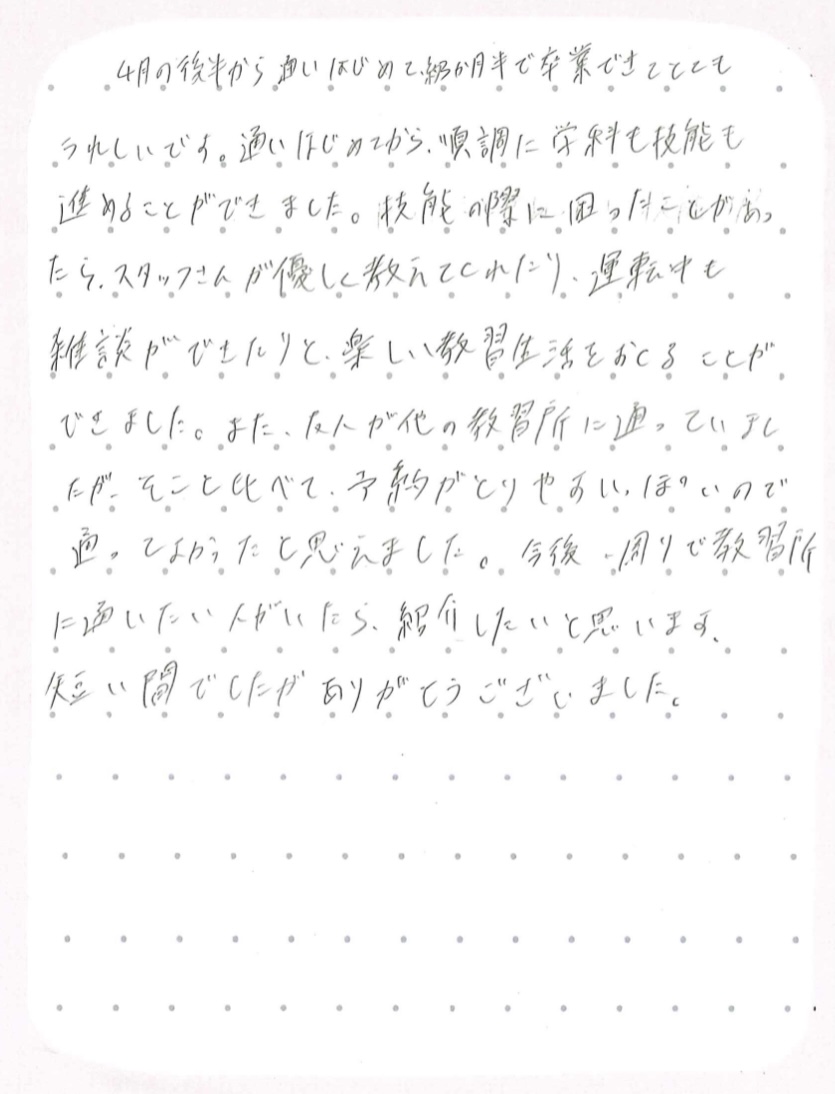 4月の後半から通いはじめて、約3か月半で卒業できてとても
うれしいです。通いはじめてから、順調に学科も技能も
進めることができました。技能の際に困ったことがあっ
たら、スタッフさんが優しく教えてくれたり、運転中も
雑談ができたりと、楽しい教習生活をおくることが
できました。また、友人が他の教習所に通っていまし
たが、そこと比べて、予約がとりやすいっぽいので
通ってよかったと思えました。今後、周りで教習所
に通いたい人がいたら、紹介したいと思います。
短い間でしたがありがとうございました。